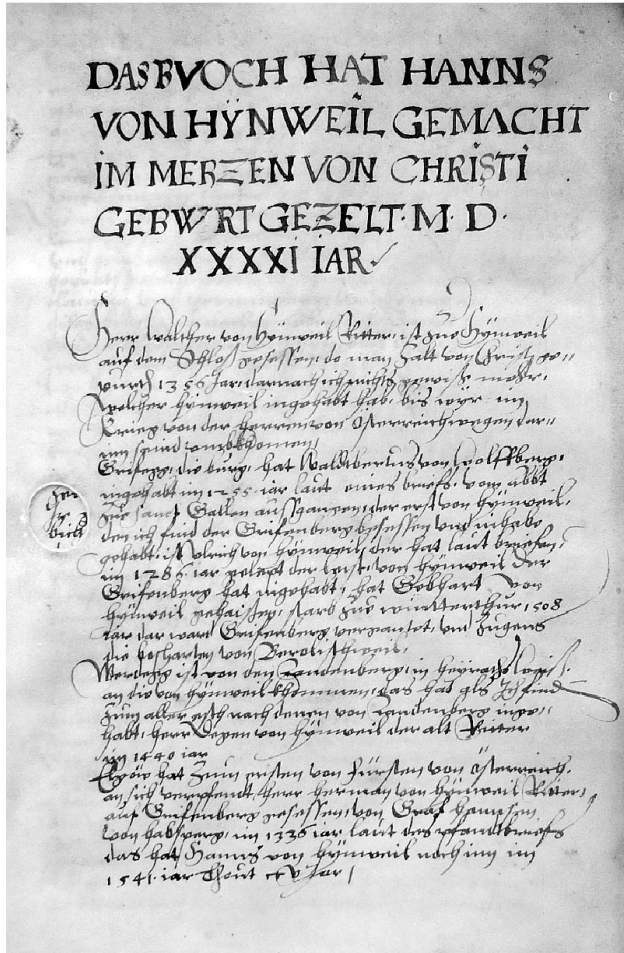 DAS BVOCH HAT HANNS
VON HŸNWEIL GEMACHT
IM MERZEN VON CHRISTI
GEBWRT GEZELT · M · D ·
XXXXI IAR
Herr Walther von Hÿnweil Ritter, ist zue Hÿnweil
auf dem Schloß gesessen, do man zalt von Christy ge-
purd 1356 Jar, darnach ich nichts gewiß,
welcher hÿnweil ingehabt hab, bis wyr im
Krieg von der herren von Österreich wegen dar-
um seind komen,
Grifenberg, die burg, hat Waldtbertus von Wolffberg,
ingehabt im 1255 iar laut eines briefs, vom abbt
zue sanct Gallen aussgangen, der erst von hÿnweil,
den ich find der Grifenberg besessen und inhabe
gehabt, ist Ulrich von hÿnweil, der hat laut briefen,
im 1285 iar gelept der letst, von hÿnweil der
Grifenberg hat ingehabt, hat Gebhart von
hÿnweil gehaissen, starb zue wintterthur, 1508
iar dar ward Grifenberg und
die von
Werdegg ist von den Landenberg, in
an die von hÿnweil khommen, das hat als Ich find
zum aller erst nach denen von Landenberg inge-
habt, herr von hÿnweil der alt Ritter
im 1440 iar
Elgöw hat zum ersten von fürsten von Österreich,
an sich verpfendt, herr herman von hÿnweil Ritter,
auf Grifenberg gesessen, von Graf hannsen
von habsperg, im 1336 iar laut des pfandtbriefs
das hat Hanns von hÿnweil noch inn im
1541 iar Thout iar